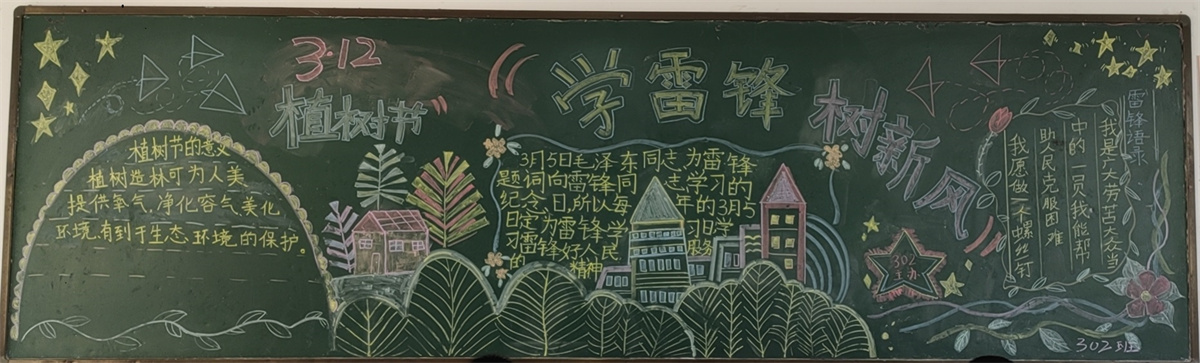 3·12
植树节
学雷锋
树新风
植树节的意义
植树造林可为人美
提供氧气,净化容气美化
环境,有到于生态环境的保护。
3月5日毛泽东同志为雷锋
题词"向雷锋同志学习"的
纪念日,所以每年的3月5
日定为雷锋学习日学
习雷锋好人民服务
的精神
雷锋语录
我是广大劳苦大众当
中的一员,我能帮
助人民克服困难
我愿做一个螺丝钉
302
主办
302班